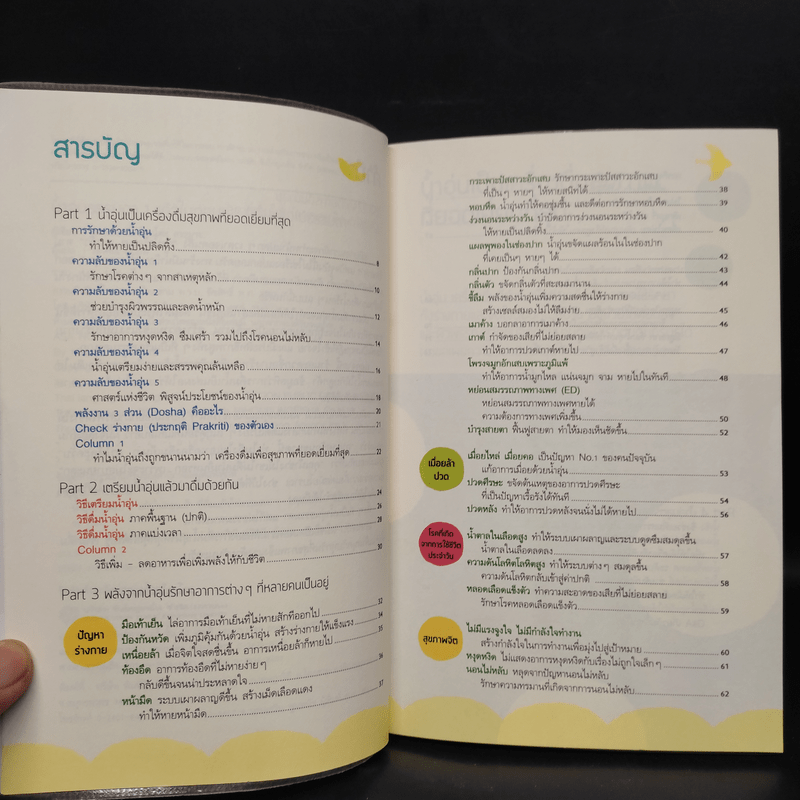 สารบัญ
Part 1 น้ำอุ่นเป็นเครื่องดื่มสุขภาพที่ยอดเยี่ยมที่สุด
การรักษาด้วยน้ำอุ่น
ทำให้หายเป็นปลิดทิ้ง 8
ความลับของน้ำอุ่น 1
รักษาโรคต่างๆ จากสาเหตุหลัก 10
ความลับของน้ำอุ่น 2
ช่วยบำรุงผิวพรรณและลดน้ำหนัก 12
ความลับของน้ำอุ่น 3
รักษาอาการหงุดหงิด ซึมเศร้า รวมไปถึงโรคนอนไม่หลับ 14
ความลับของน้ำอุ่น 4
น้ำอุ่นเตรียมง่ายและสรรพคุณล้นเหลือ 16
ความลับของน้ำอุ่น 5
ศาสตร์แห่งชีวิต พิสูจน์ประโยชน์ของน้ำอุ่น 18
พลังงาน 3 ส่วน (Dosha) คืออะไร 20
Check ร่างกาย (ประกฤติ Prakriti) ของตัวเอง 21
Column 1
ทำไมน้ำอุ่นถึงถูกขนานนามว่า เครื่องดื่มเพื่อสุขภาพที่ยอดเยี่ยมที่สุด 22
Part 2 เตรียมน้ำอุ่นแล้วมาดื่มด้วยกัน
วิธีเตรียมน้ำอุ่น 24
วิธีดื่มน้ำอุ่น ภาคพื้นฐาน (ปกติ) 26
วิธีดื่มน้ำอุ่น ภาคแบ่งเวลา 28
Column 2
วิธีเพิ่ม - ลดอาหารเพื่อเพิ่มพลังให้กับชีวิต 30
Part 3 พลังจากน้ำอุ่นรักษาอาการต่างๆ ที่หลายคนเป็นอยู่
ปัญหา
ร่างกาย
มือเท้าเย็น ไล่อาการมือเท้าเย็นที่ไม่หายสักทีออกไป 32
ป้องกันหวัด เพิ่มภูมิคุ้มกันด้วยน้ำอุ่น สร้างร่างกายให้แข็งแรง
เหนื่อยล้า เมื่อจิตใจสดชื่นขึ้น อาการเหนื่อยล้าก็หายไป
ท้องอืด อาการท้องอืดที่ไม่หายง่ายๆ
กลับดีขึ้นจนน่าประหลาดใจ 36
หน้ามืด ระบบเผาผลาญดีขึ้น สร้างเม็ดเลือดแดง
ทำให้หายหน้ามืด 37
กระเพาะปัสสาวะอักเสบ รักษากระเพาะปัสสาวะอักเสบ
ที่เป็นๆ หายๆ ให้หายสนิทได้ 38
หอบหืด น้ำอุ่นทำให้คอชุ่มชื้น และดีต่อการรักษาหอบหืด 39
ง่วงนอนระหว่างวัน บำบัดอาการง่วงนอนระหว่างวัน
ให้หายเป็นปลิดทิ้ง 40
แผลพุพองในช่องปาก น้ำอุ่นขจัดแผลร้อนในในช่องปาก
ที่เคยเป็นๆ หายๆ ได้ 42
กลิ่นปาก ป้องกันกลิ่นปาก 43
กลิ่นตัว ขจัดกลิ่นตัวที่สะสมมานาน 44
ขี้ลืม พลังของน้ำอุ่นเพิ่มความสดชื่นให้ร่างกาย
สร้างเซลล์สมองไม่ให้ลืมง่าย 45
เมาค้าง บอกลาอาการเมาค้าง 46
เกาต์ กำจัดของเสียที่ไม่ย่อยสลาย
ทำให้อาการปวดเกาต์หายไป 47
โพรงจมูกอักเสบเพราะภูมิแพ้
ทำให้อาการน้ำมูกไหล แน่นจมูก จาม หายไปในทันที 48
หย่อนสมรรถภาพทางเพศ (ED)
หย่อนสมรรถภาพทางเพศหายได้
ความต้องการทางเพศเพิ่มขึ้น 50
บำรุงสายตา ฟื้นฟูสายตา ทำให้มองเห็นชัดขึ้น 52
เมื่อยล้า
ปวด
เมื่อยไหล่ เมื่อยคอ เป็นปัญหา No.1 ของคนปัจจุบัน
แก้อาการเมื่อยด้วยน้ำอุ่น 53
ปวดศีรษะ ขจัดต้นเหตุของอาการปวดศีรษะ
ที่เป็นปัญหาเรื้อรังได้ทันที 54
ปวดหลัง ทำให้อาการปวดหลังจนนั่งไม่ได้หายไป 56
โรคที่เกิด
จากการใช้ชีวิต
ประจำวัน
น้ำตาลในเลือดสูง ทำให้ระบบเผาผลาญและระบบดูดซึมสมดุลขึ้น
น้ำตาลในเลือดลดลง 57
ความดันโลหิตโลหิตสูง ทำให้ระบบต่างๆ สมดุลขึ้น
ความดันโลหิตกลับเข้าสู่ค่าปกติ 58
หลอดเลือดแข็งตัว ทำความสะอาดของเสียที่ไม่ย่อยสลาย
รักษาโรคหลอดเลือดแข็งตัว 59
สุขภาพจิต
ไม่มีแรงจูงใจ ไม่มีกำลังใจทำงาน
สร้างกำลังใจในการทำงานเพื่อมุ่งไปสู่เป้าหมาย 60
หงุดหงิด ไม่แสดงอาการหงุดหงิดกับเรื่องไม่ถูกใจเล็กๆ 61
นอนไม่หลับ หลุดจากปัญหานอนไม่หลับ
รักษาความทรมานที่เกิดจากการนอนไม่หลับ 62